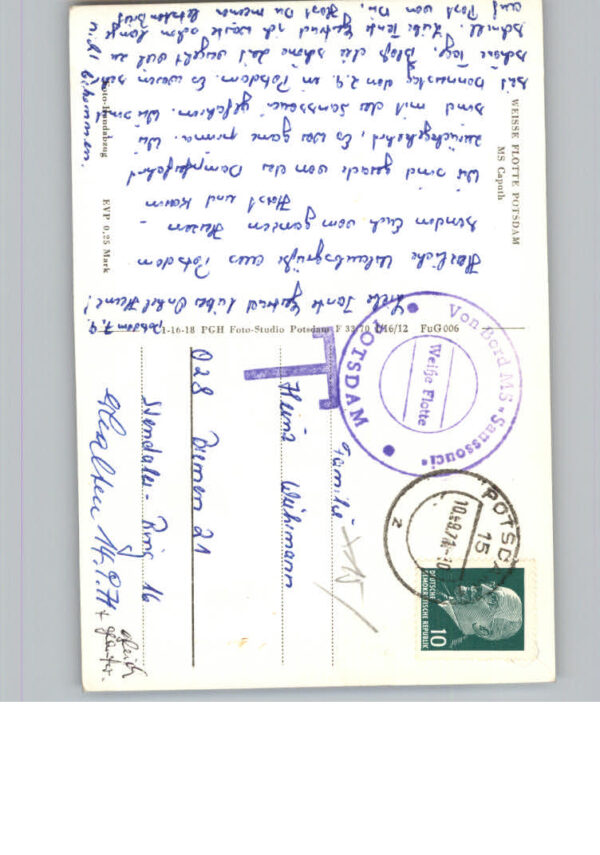 Potsdam 7.9.
Liebe Tante Gertrud lieber Onkel Heinz!
Herzliche Urlaubsgrüße aus Potsdam
senden Euch vom ganzen Herzen -
Horst und Karin
Wir sind gerade von der Dampferfahrt
zurückgekehrt, Es war ganz prima. Wir
sind mit der Sanssouci gefahren. Wir sind
seit Donnerstag den 2.9. in Potsdam. Es waren
schöne Tage, Bloß die schöne Zeit vergeht viel zu
schnell. Liebe Tante Gertrud ich warte schon lange
auf Post von Dir, Hast Du meinen letzten Brief
nicht bekommen.
WEISSE FLOTTE POTSDAM
MS Caputh
Foto-Handabzug
EVP 0,25 Mark
1-16-18 PGH Foto-Studio Potsdam F 33/70 1/16/12 FuG 006
Von Bord MS "Sanssouci"
Weiße Flotte
POTSDAM
T
POTSDAM
15
10.-9.71-10
z
DEUTSCHE
DEMOKRATISCHE REPUBLIK
10
Familie
Heinz
D 28 Bremen 21
Stendaler-Ring 16
erhalten 14.9.71 +
gleich